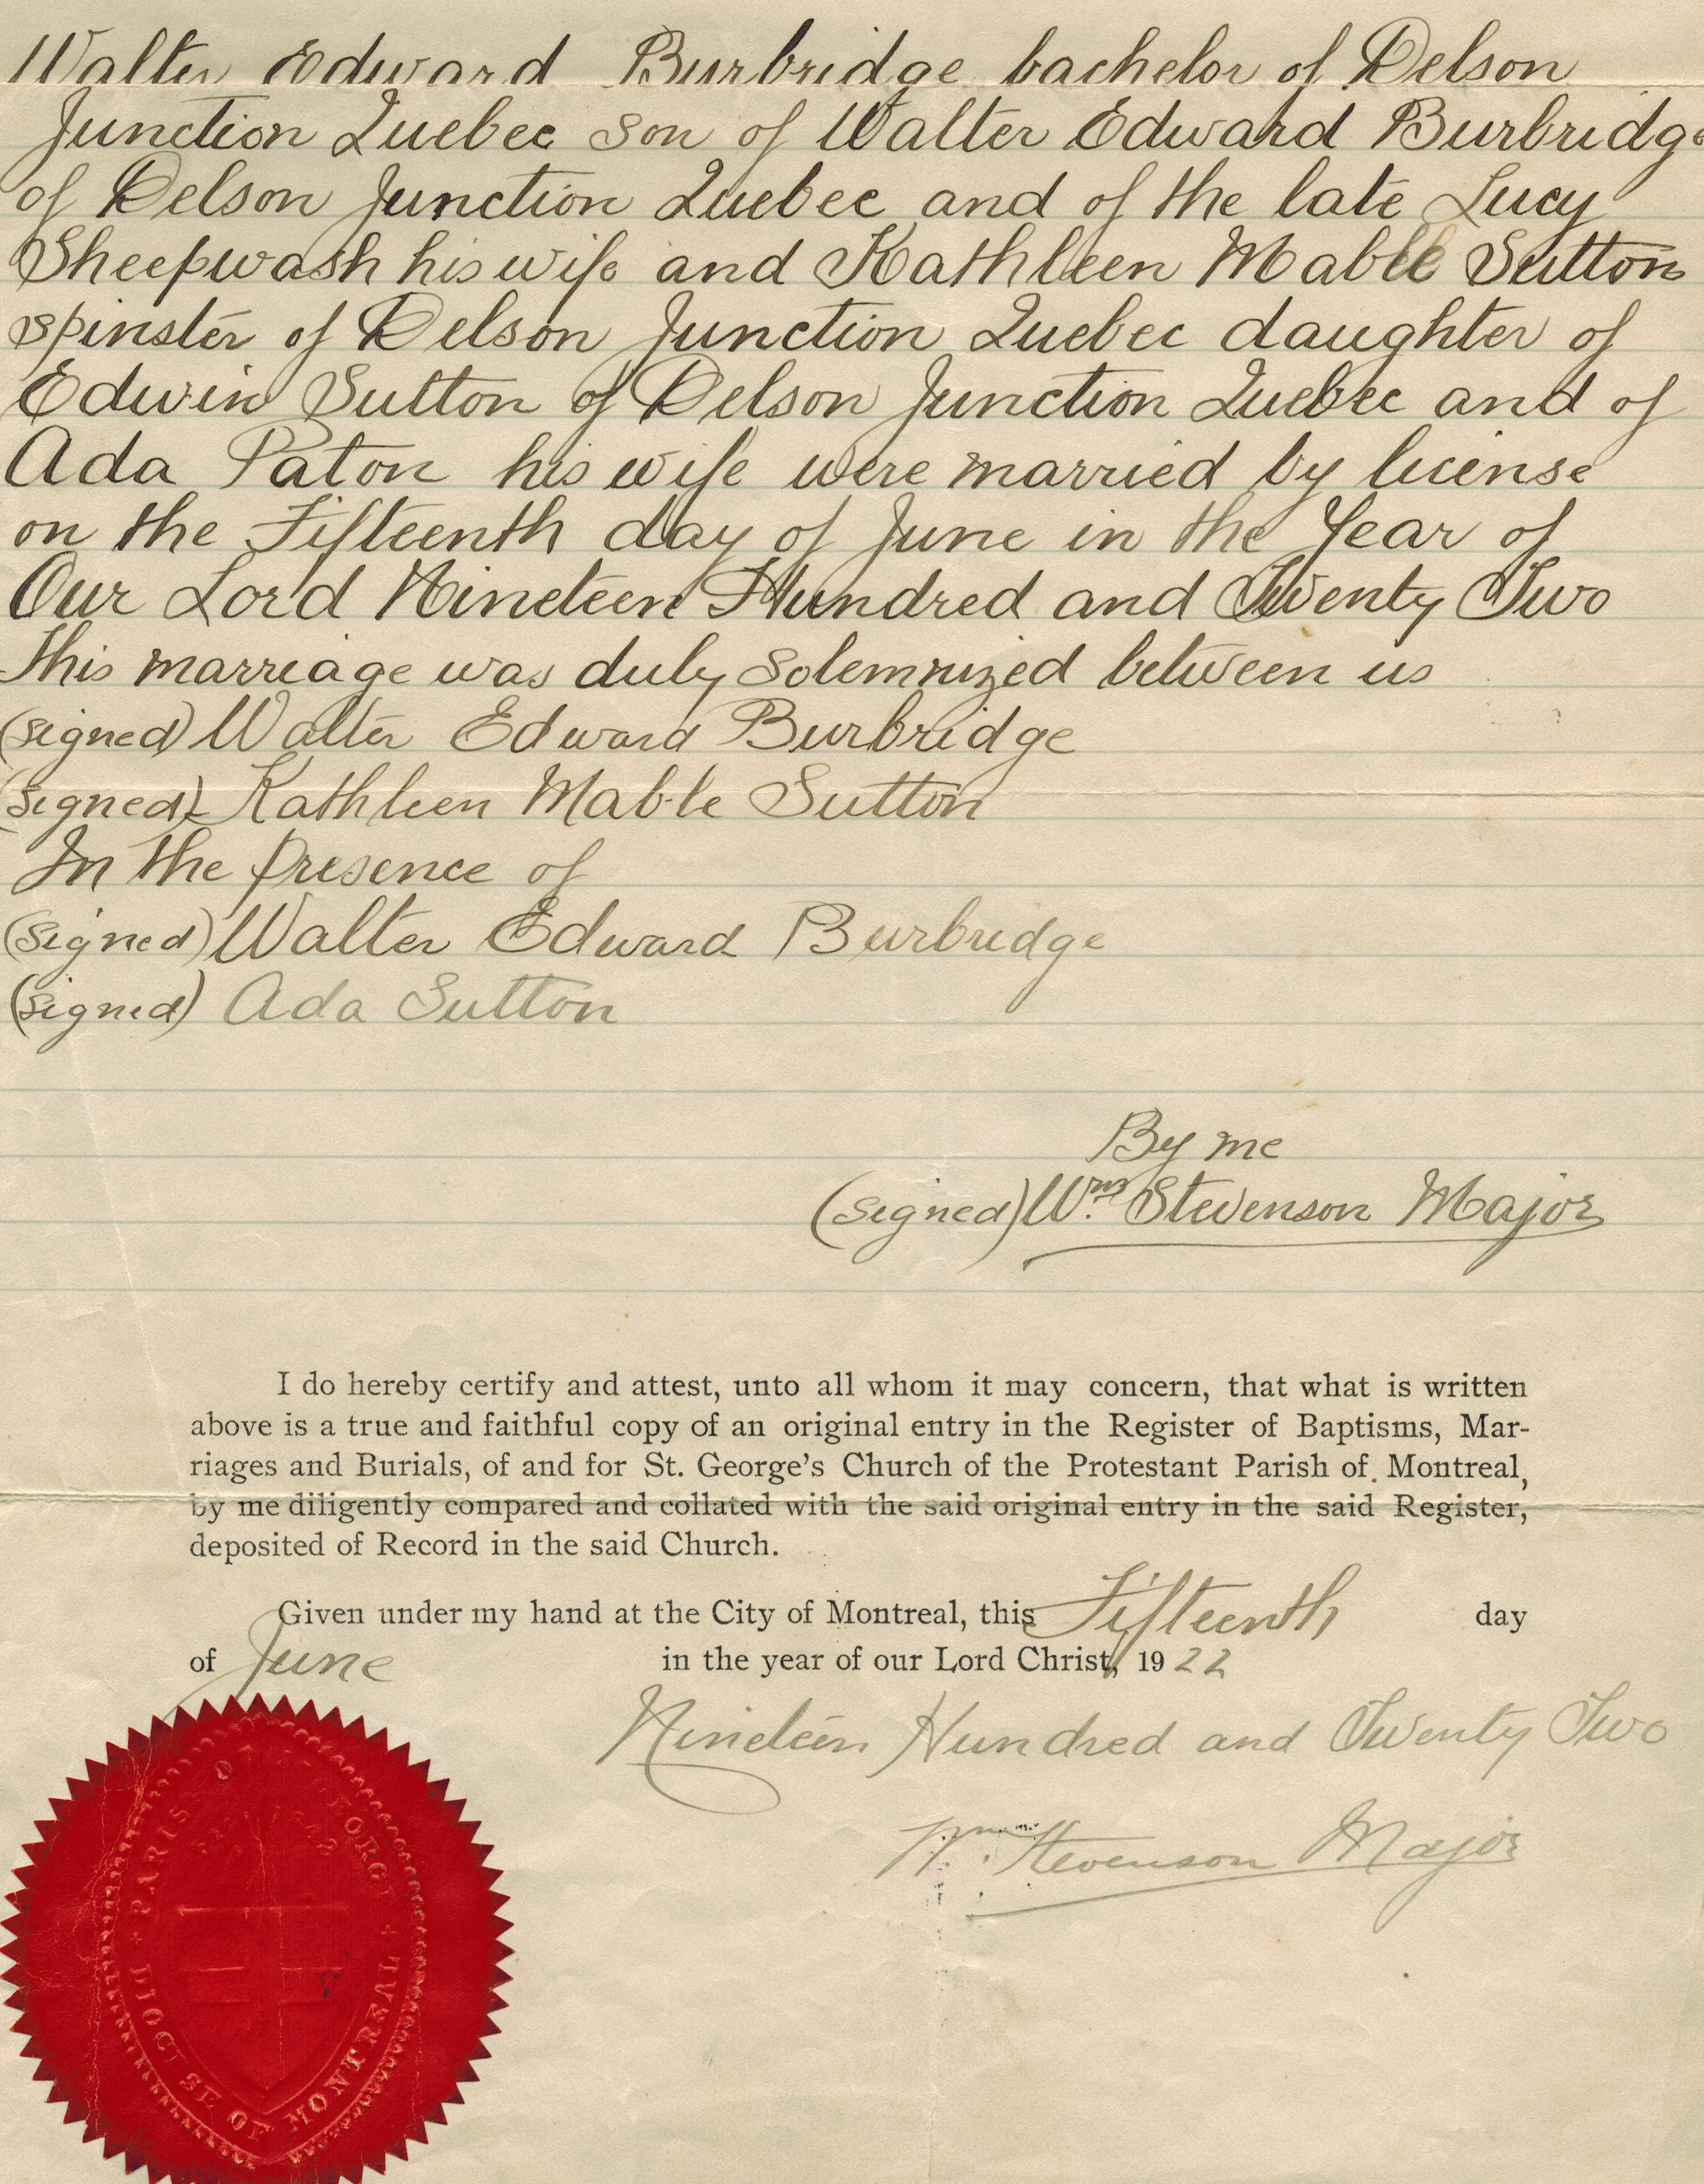 Walter Edward Burbridge bachelor of Delson
Junction Quebec son of Walter Edward Burbridge
of Delson Junction Quebec and of the late Lucy
Sheepwash his wife and Kathleen Mable Sutton
spinster of Delson Junction Quebec daughter of
Edwin Sutton of Delson Junction Quebec and of
Ada Paton his wife were married by license
on the Fifteenth day of June in the Year of
Our Lord Nineteen Hundred and Twenty Two
This marriage was duly solemnized between us
(signed) Walter Edward Burbridge
(signed) Kathleen Mable Sutton
In the presence of
(signed) Walter Edward Burbridge
(signed) Ada Sutton
By me
(signed) Wm. Stevenson Major
I do hereby certify and attest, unto all whom it may concern, that what is written
above is a true and faithful copy of an original entry in the Register of Baptisms, Mar-
riages and Burials, of and for St. George's Church of the Protestant Parish of Montreal,
by me diligently compared and collated with the said original entry in the said Register,
deposited of Record in the said Church.
Given under my hand at the City of Montreal, this Fifteenth day
of June in the year of our Lord Christ, 1922
Nineteen Hundred and Twenty Two
Wm. Stevenson Major
DIOCESE OF MONTREAL